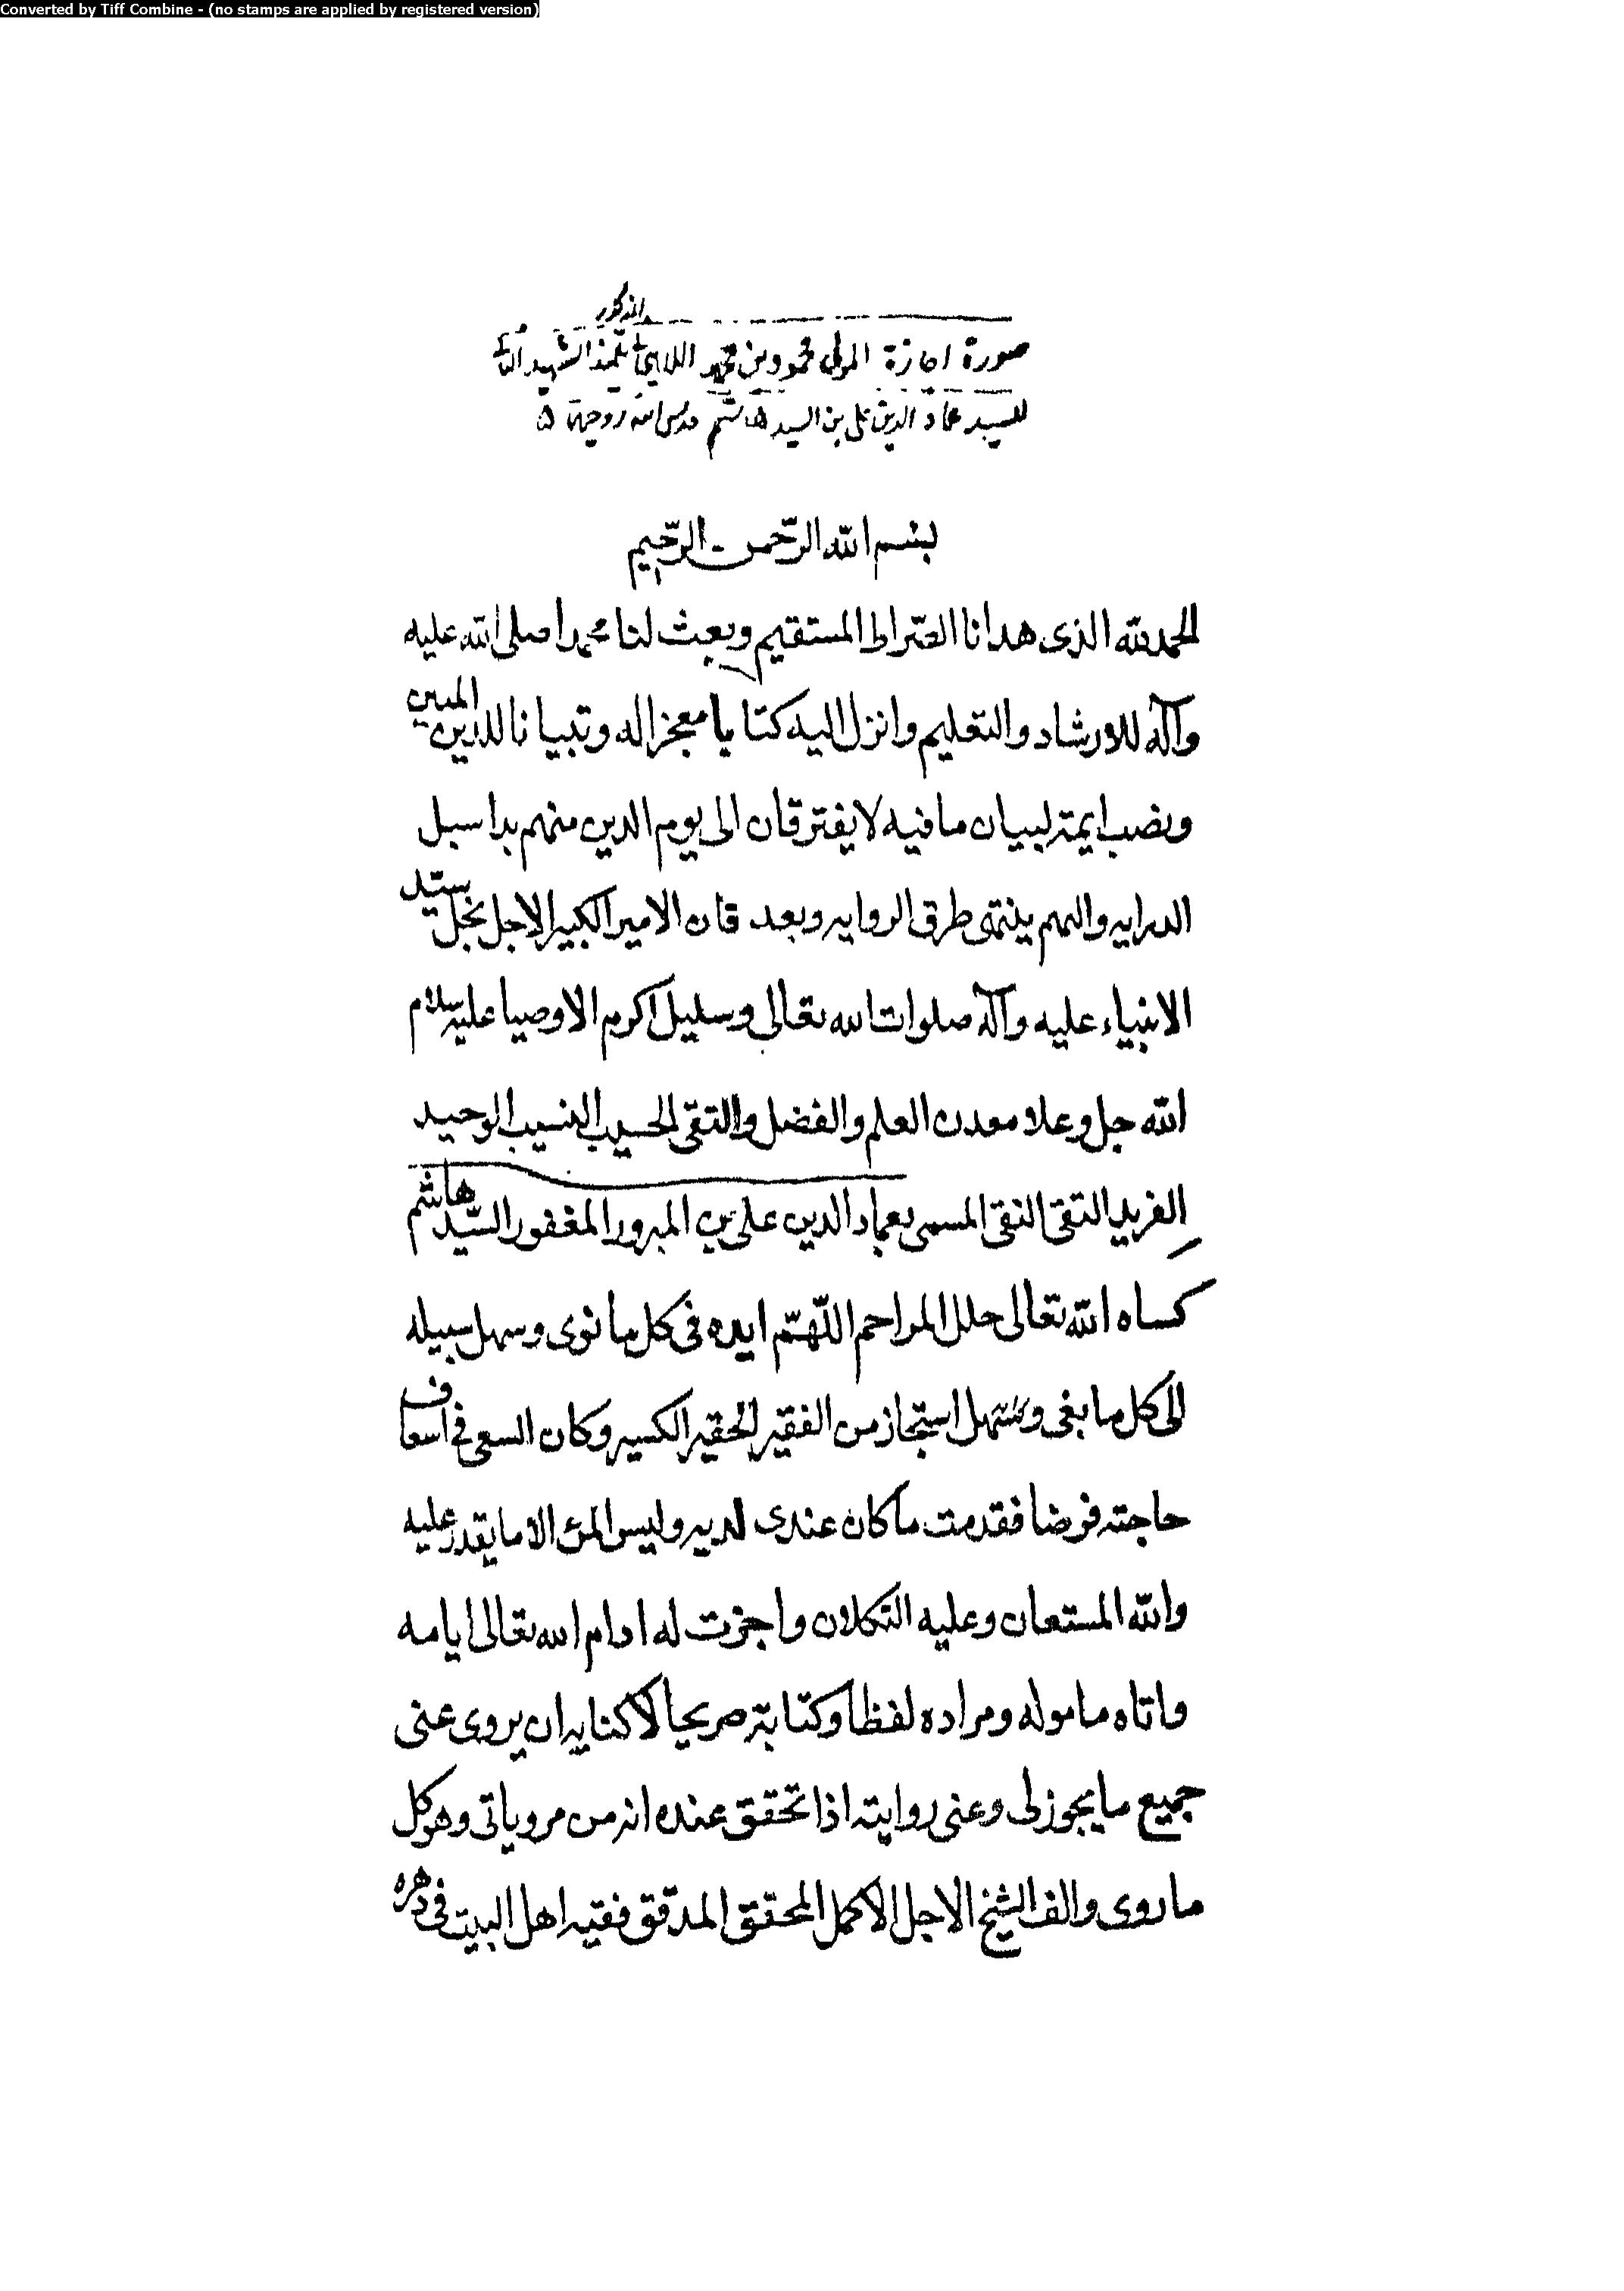 Converted by Tiff Combine - (no stamps are applied by registered version)
المذكور
صورة اجازة المولى محمود بن محمد اللاهيجي تلميذ الشهيد الثاني
للسيد عماد الدين علي بن السيد هاشم قدس الله روحيهما
بسم الله الرّحمن الرّحيم
الحمد لله الذى هدانا الصّراط المستقيم وبعث لنا محمدا صلى الله عليه
وآله للارشاد والتعليم وانزل اليه كتابا معجزا له وتبيانا للدين المبين
ونصب ايمة لبيان ما فيه لا يفترقان الى يوم الدين منهم بدا سبل
الدرايه واليهم ينتمى طرق الروايه وبعد فان الامير الكبير الاجل نجل سيّد
الانبياء عليه وآله صلوات الله تعالى وسليل اكرم الاوصيا عليه سلام
الله جل وعلا معدن العلم والفضل والتقى الحسيب النسيب الوحيد
الفريد التقى النقى المسمى بعماد الدين على بن المبرور المغفور السّيد هاشم
كساه الله تعالى حلل المراحم اللّهمّ ايده فى كل ما نوى وسهل سبيله
الى كل ما بغى استجاز من الفقير الحقير الكسير وكان السعى فى اسعاف
حاجته فرضا فقدمت ما كان عندى لديه وليس المرء الا ما يقدر عليه
والله المستعان وعليه التكلان واجزت له ادام الله تعالى ايامه
واتاه ماموله ومراده لفظا وكتابة صريحا لا كنايه ان يروى عنى
جميع ما يجوز لى وعنى روايته اذا تحقق عنده انه من مروياتى وهو كل
ما روى والف الشيخ الاجل الاكمل المحقق المدقق فقيه اهل البيت فى دهره